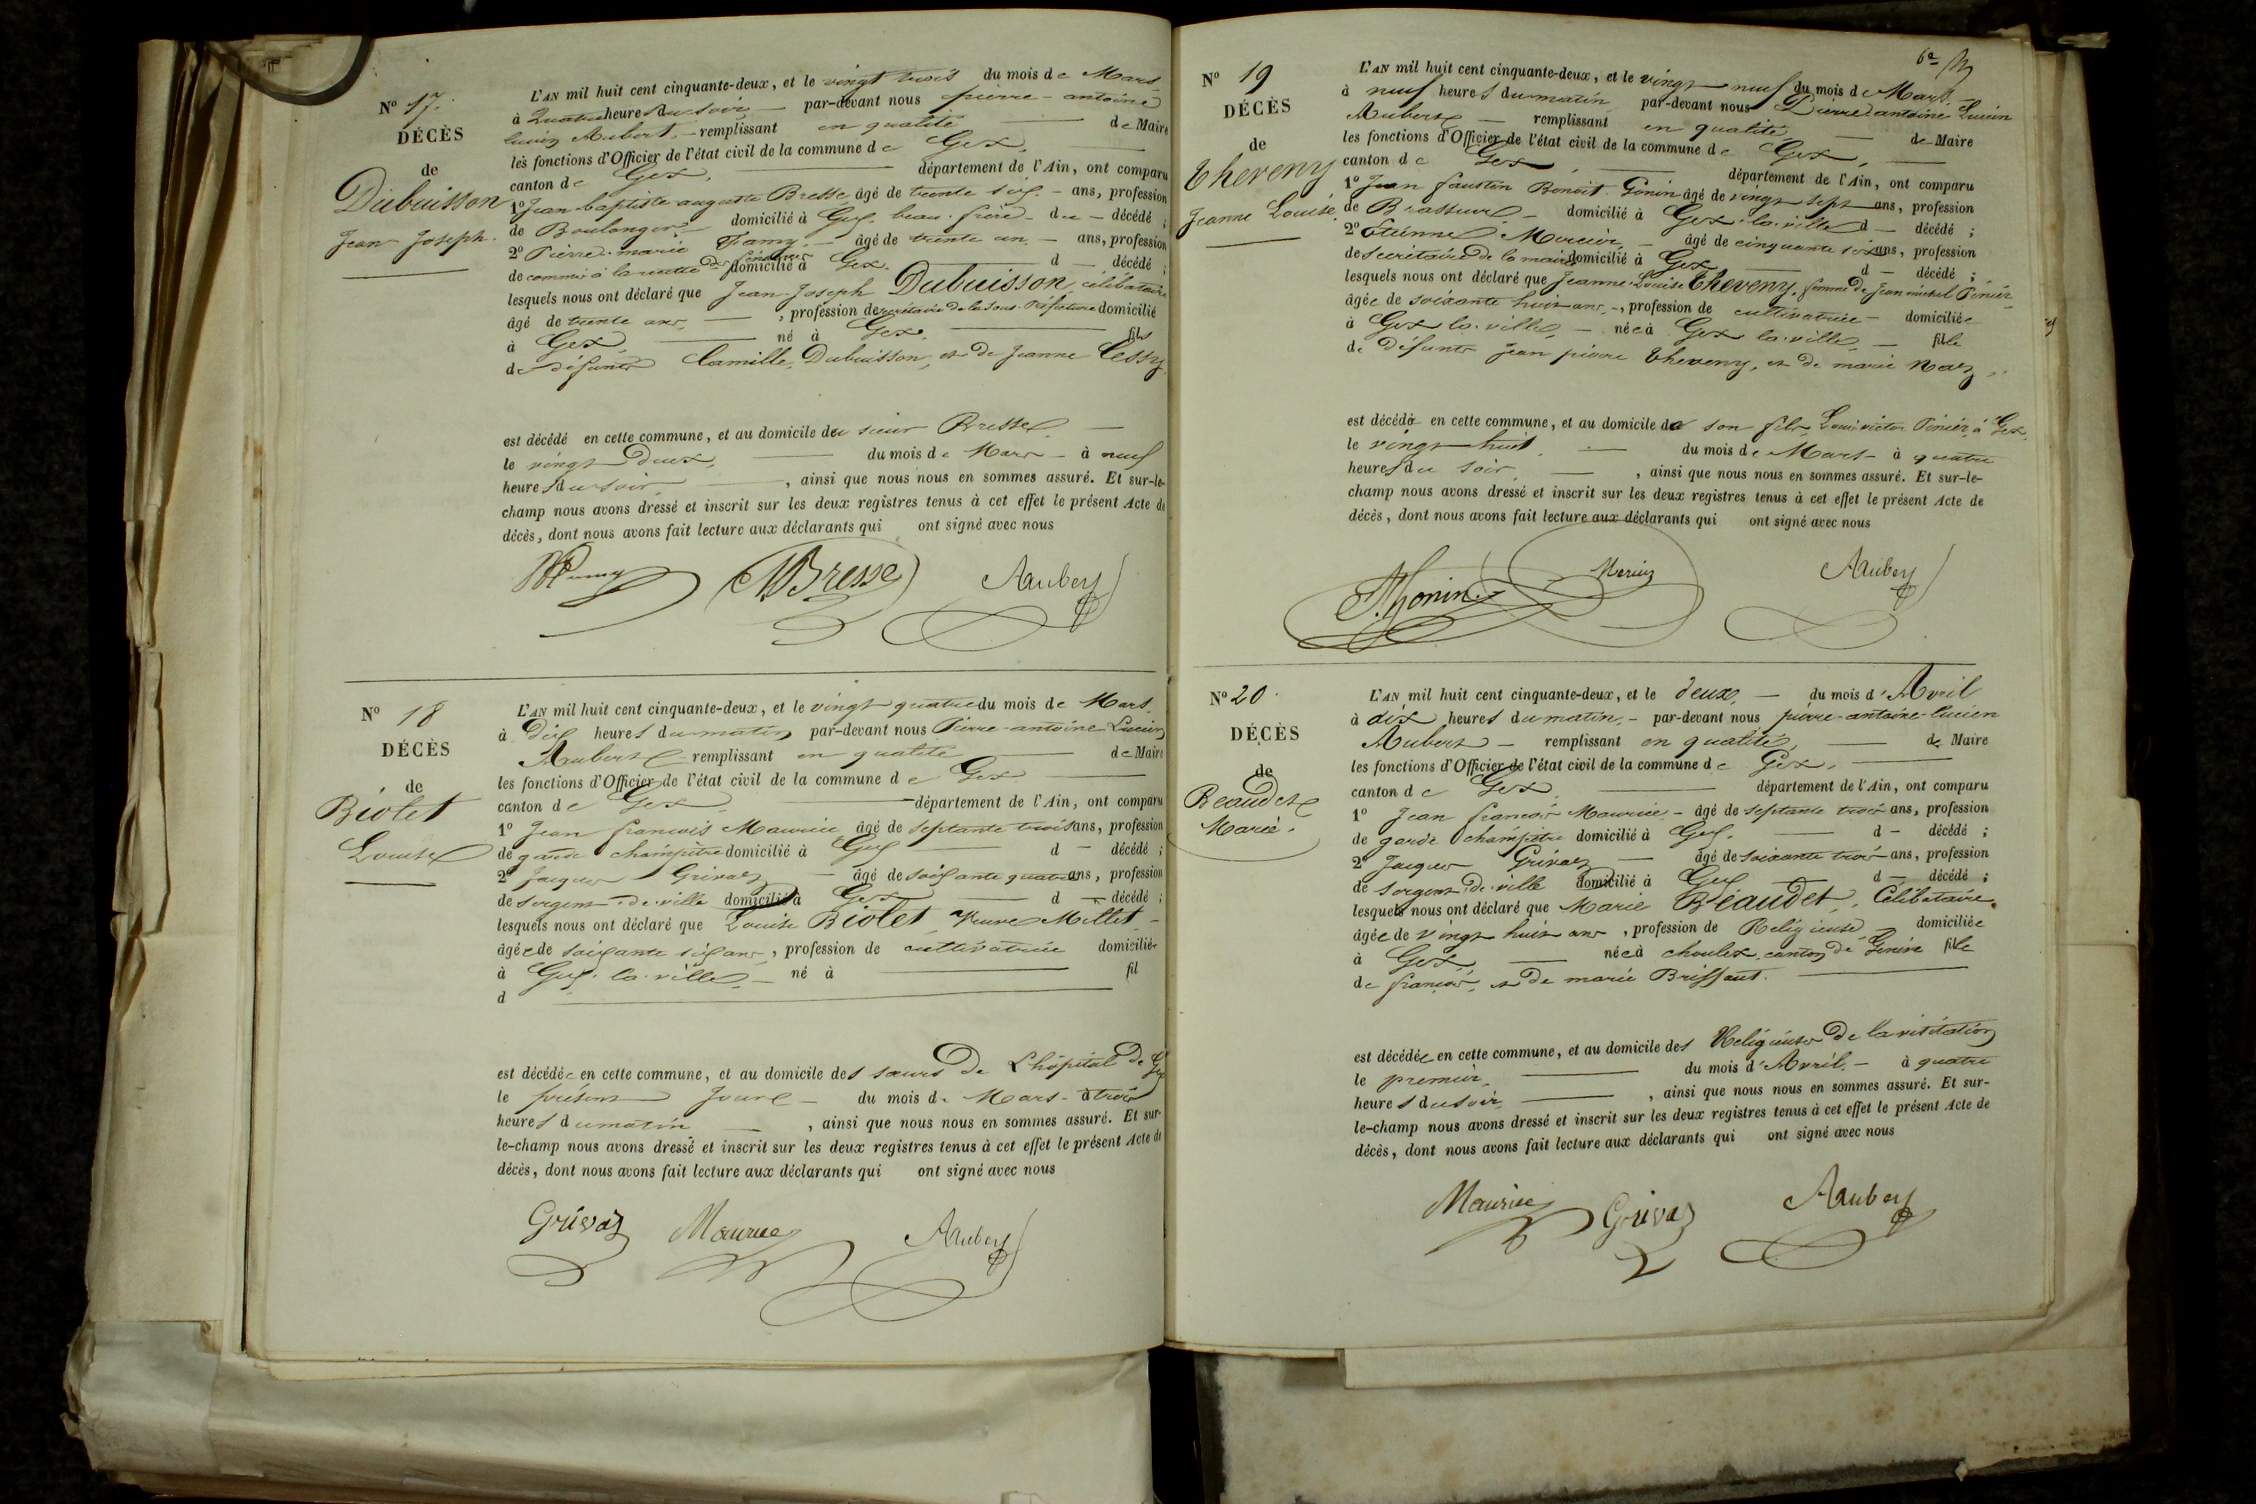 N° 17.
DÉCÈS
de
Dubuisson
Jean Joseph.
L'AN mil huit cent cinquante-deux, et le vingt trois du mois de Mars
à quatre heures du soir par-devant nous pierre-antoine
lucien Aubert remplissant en qualité de Maire
les fonctions d'Officier de l'état civil de la commune de Gex,
canton de Gex, département de l'Ain, ont comparu
1° Jean baptiste auguste Bresse, âgé de trente six ans, profession
de Boulanger domicilié à Gex, beau-frère du décédé ;
2° Pierre-marie Famy âgé de trente un ans, profession
de commis à la recette des finances domicilié à Gex. d décédé ;
lesquels nous ont déclaré que Jean-Joseph Dubuisson, célibataire
âgé de trente ans, , profession de secrétaire de la Sous-Préfecture domicilié
à Gex, né à Gex. fils
de défunts Camille Dubuisson, et de Jeanne Cessy,
est décédé en cette commune, et au domicile du sieur Bresse
le vingt deux, du mois de Mars à neuf
heures du soir , ainsi que nous nous en sommes assuré. Et sur-le-
champ nous avons dressé et inscrit sur les deux registres tenus à cet effet le présent Acte de
décès, dont nous avons fait lecture aux déclarants qui ont signé avec nous
Famy Bresse Aubert
N° 18
DÉCÈS
de
Biolet
Louise
L'AN mil huit cent cinquante-deux, et le vingt quatre du mois de Mars.
à Dix heures du matin par-devant nous Pierre-antoine Lucien
Aubert remplissant en qualité de Maire
les fonctions d'Officier de l'état civil de la commune de Gex
canton de Gex département de l'Ain, ont comparu
1° Jean francois Maurice âgé de septante trois ans, profession
de garde champêtre domicilié à Gex d décédé ;
2° Jacques Grivaz âgé de soixante quatre ans, profession
de sergent de ville domicilié à Gex d décédé ;
lesquels nous ont déclaré que Louise Biolet, Veuve Millet
âgée de soixante six ans, profession de cultivatrice domiciliée
à Gex-la-ville, né à fil
d
est décédée en cette commune, et au domicile des sœurs de L'hôpital de Gex
le présent Jour du mois de Mars à trois
heures du matin , ainsi que nous nous en sommes assuré. Et sur-
le-champ nous avons dressé et inscrit sur les deux registres tenus à cet effet le présent Acte de
décès, dont nous avons fait lecture aux déclarants qui ont signé avec nous
Grivaz Maurice Aubert
6e
N° 19
DÉCÈS
de
Theveny
Jeanne Louise
L'AN mil huit cent cinquante-deux, et le vingt neuf du mois de Mars.
à neuf heures du matin par-devant nous Pierre antoine Lucien
Aubert remplissant en qualité de Maire
les fonctions d'Officier de l'état civil de la commune de Gex,
canton de Gex, département de l'Ain, ont comparu
1° Jean faustin Benoit Gonin âgé de vingt sept ans, profession
de Brasseur domicilié à Gex-la-ville d décédé ;
2° Etienne Mercier, âgé de cinquante six ans, profession
de secrétaire de la mairie domicilié à Gex d décédé ;
lesquels nous ont déclaré que Jeanne-Louise Theveny, femme de Jean michel Pinier
âgée de soixante huit ans, profession de cultivatrice domiciliée
à Gex la-ville, née à Gex la-ville, fille
de défunts Jean pierre Theveny, et de marie
est décédée en cette commune, et au domicile de son fils Louis victor Pinier, à Gex.
le vingt huit du mois de Mars à quatre
heures du soir , ainsi que nous nous en sommes assuré. Et sur-le-
champ nous avons dressé et inscrit sur les deux registres tenus à cet effet le présent Acte de
décès, dont nous avons fait lecture aux déclarants qui ont signé avec nous
Gonin Mercier Aubert
N° 20
DÉCÈS
de
Beaudet
Marie.
L'AN mil huit cent cinquante-deux, et le deux, du mois d'Avril
à dix heures du matin, par-devant nous pierre-antoine-lucien
Aubert remplissant en qualité, de Maire
les fonctions d'Officier de l'état civil de la commune de Gex,
canton de Gex, département de l'Ain, ont comparu
1° Jean françois Maurice âgé de septante trois ans, profession
de garde champêtre domicilié à Gex, d décédé ;
2° Jacques Grivaz âgé de soixante trois ans, profession
de sergent de ville domicilié à Gex d décédé ;
lesquels nous ont déclaré que Marie Béaudet, Célibataire,
âgée de vingt huit ans, profession de Religieuse domiciliée
à Gex, née à choulex, canton de Genève fille
de françois, et de marie Briffaut.
est décédée en cette commune, et au domicile des Religieuses de la visitation
le premier, du mois d'Avril. à quatre
heures du soir, , ainsi que nous nous en sommes assuré. Et sur-
le-champ nous avons dressé et inscrit sur les deux registres tenus à cet effet le présent Acte de
décès, dont nous avons fait lecture aux déclarants qui ont signé avec nous
Maurice Grivaz Aubert